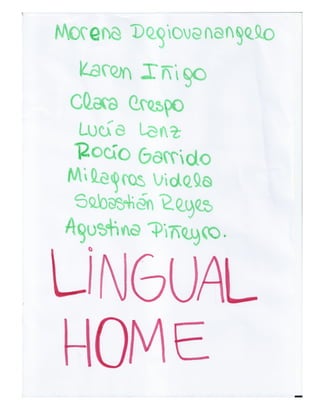 Morena Degiovanangelo
Karen Iñigo
Clara Crespo
Lucía Lanz
Rocío Garrido
Milagros Videla
Sebastián Reyes
Agustina Piñeyro.
LiNGUAL
HOME